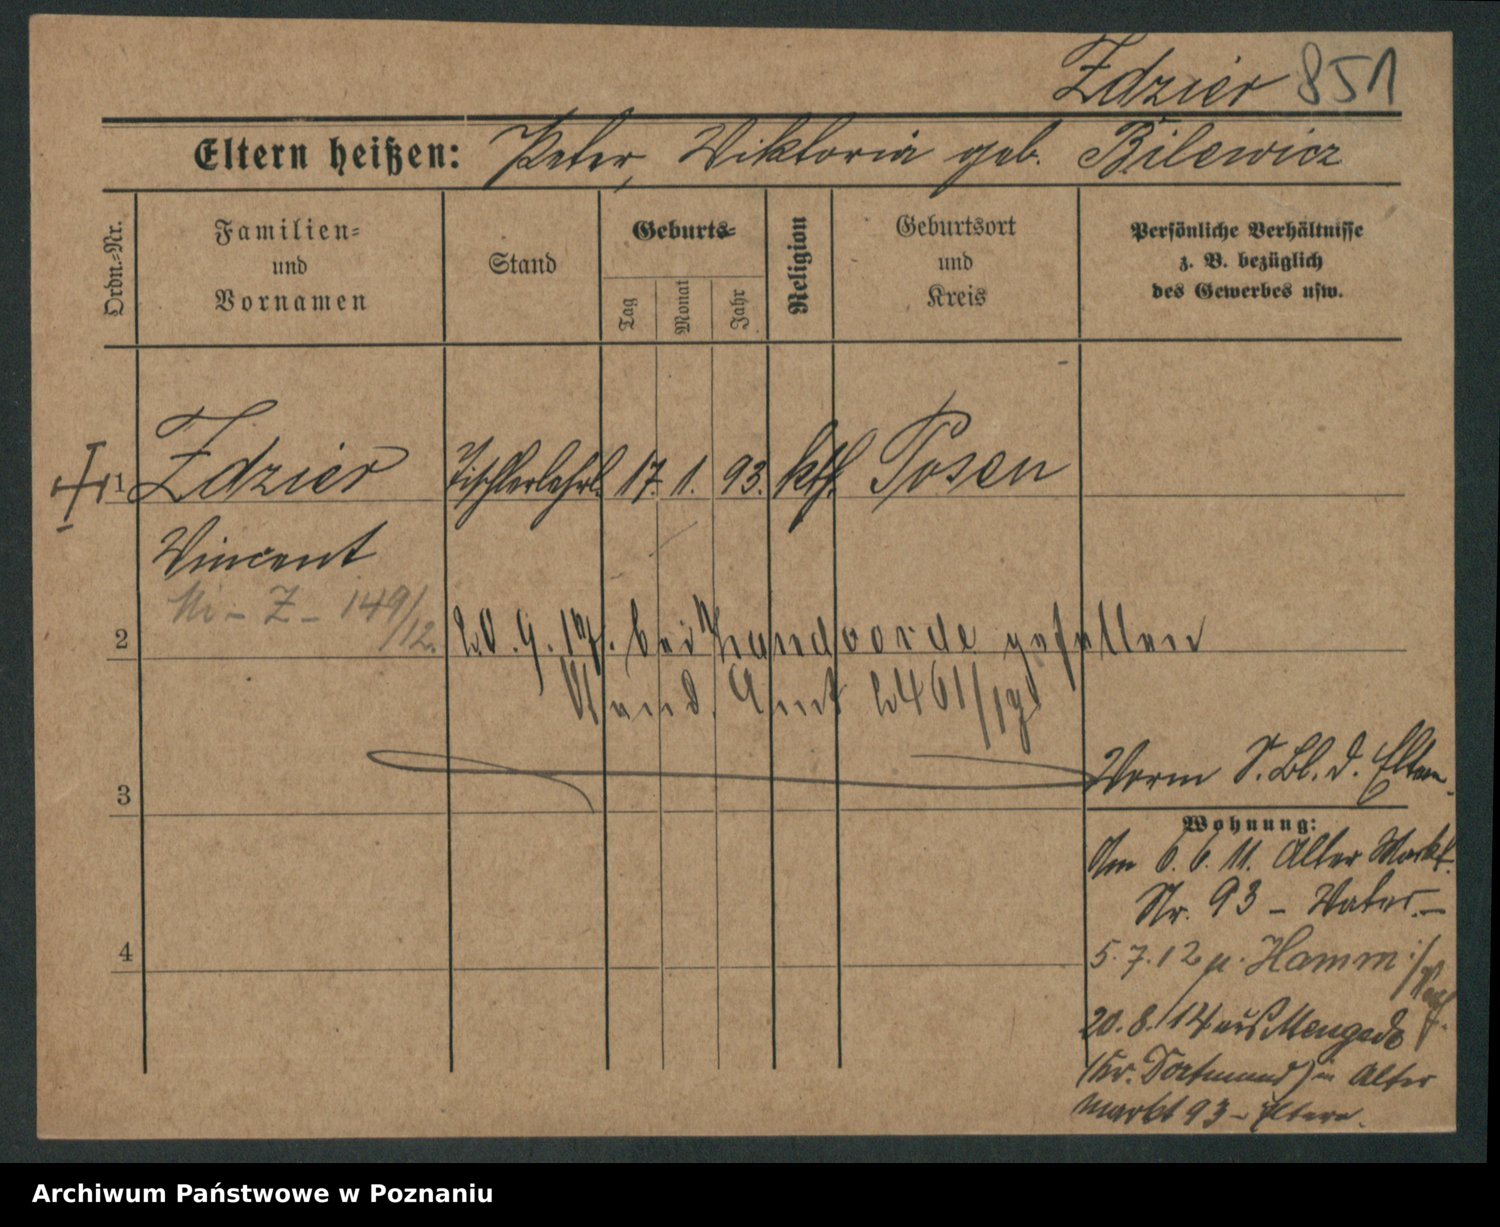 Zdzier 851
Eltern heißen: Peter, Viktoria geb. Bilewicz
Ordn.-Nr.
Familien-
und
Vornamen
Stand
Geburts-
Tag
Monat
Jahr
Religion
Geburtsort
und
Kreis
Persönliche Verhältnisse
z. B. bezüglich
des Gewerbes usw.
1 Zdzier Tischlerlehrl. 17. 1. 93. kth. Posen
Vincent
- Z - 149/12.
2 20. 9. 17. bei Zandvorde gefallen
Stand. Amt 2461/19
3 Vorm S. Bl. d. Eltern.
Wohnung:
Am 6. 6. 11. Alter Markt.
Nr. 93 - Vater. -
4 5. 7. 12 n. Hamm i/Westf.
20. 8. 14 aus Mengede
(Kr. Dortmund) in Alter
markt 93 - Eltern.
Archiwum Państwowe w Poznaniu